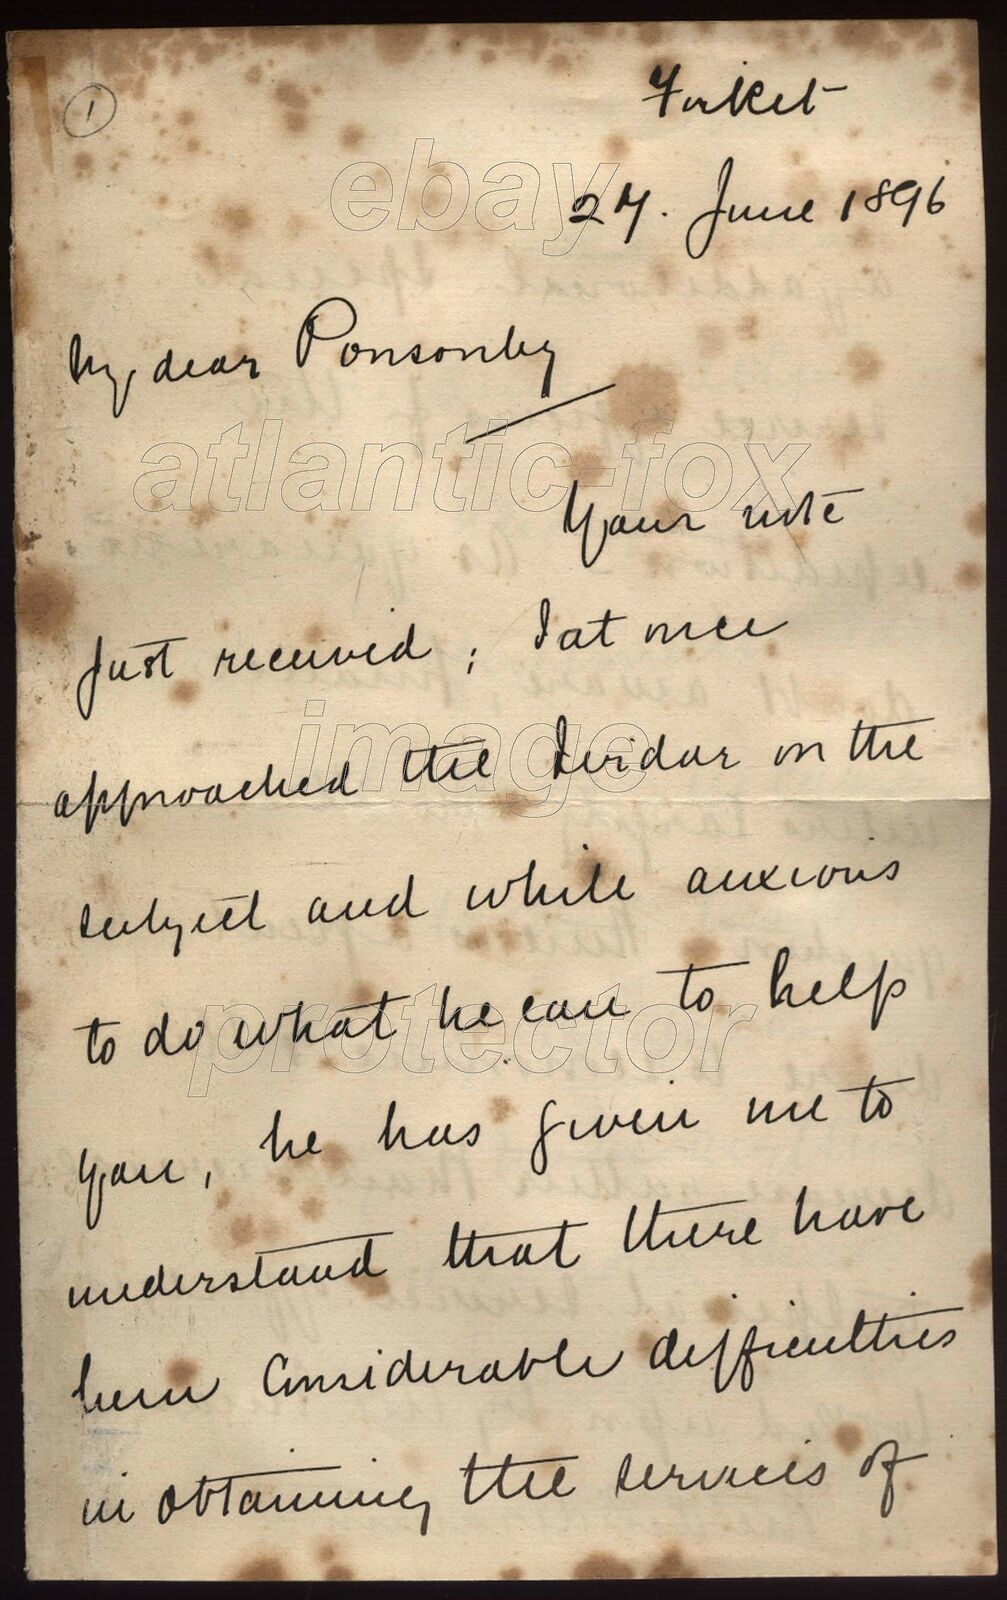 1
Firket
27. June 1896
My dear Ponsonby
Your note
just received; I at once
approached the Sirdar on the
subject and while anxious
to do what he can to help
you, he has given me to
understand that there have
been considerable difficulties
in obtaining the services of
ebay
atlantic-fox
image
protector